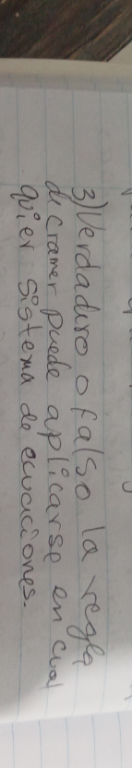 3) Verdadero o falso la regla
de cramer puede aplicarse en cual
quier sistema de ecuaciones.